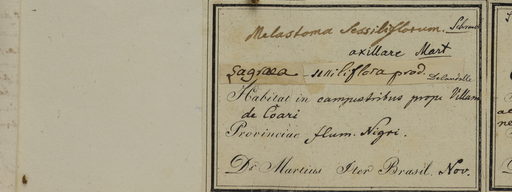 Melastoma Sessiliflorum. Schrank
axillare Mart
Sagraea - sessiliflora prod. Decandolle
Habitat in campestribus prope Villam
de Coari
Provinciae flum. Nigri.
Dr. Martius Iter Brasil. Nov.